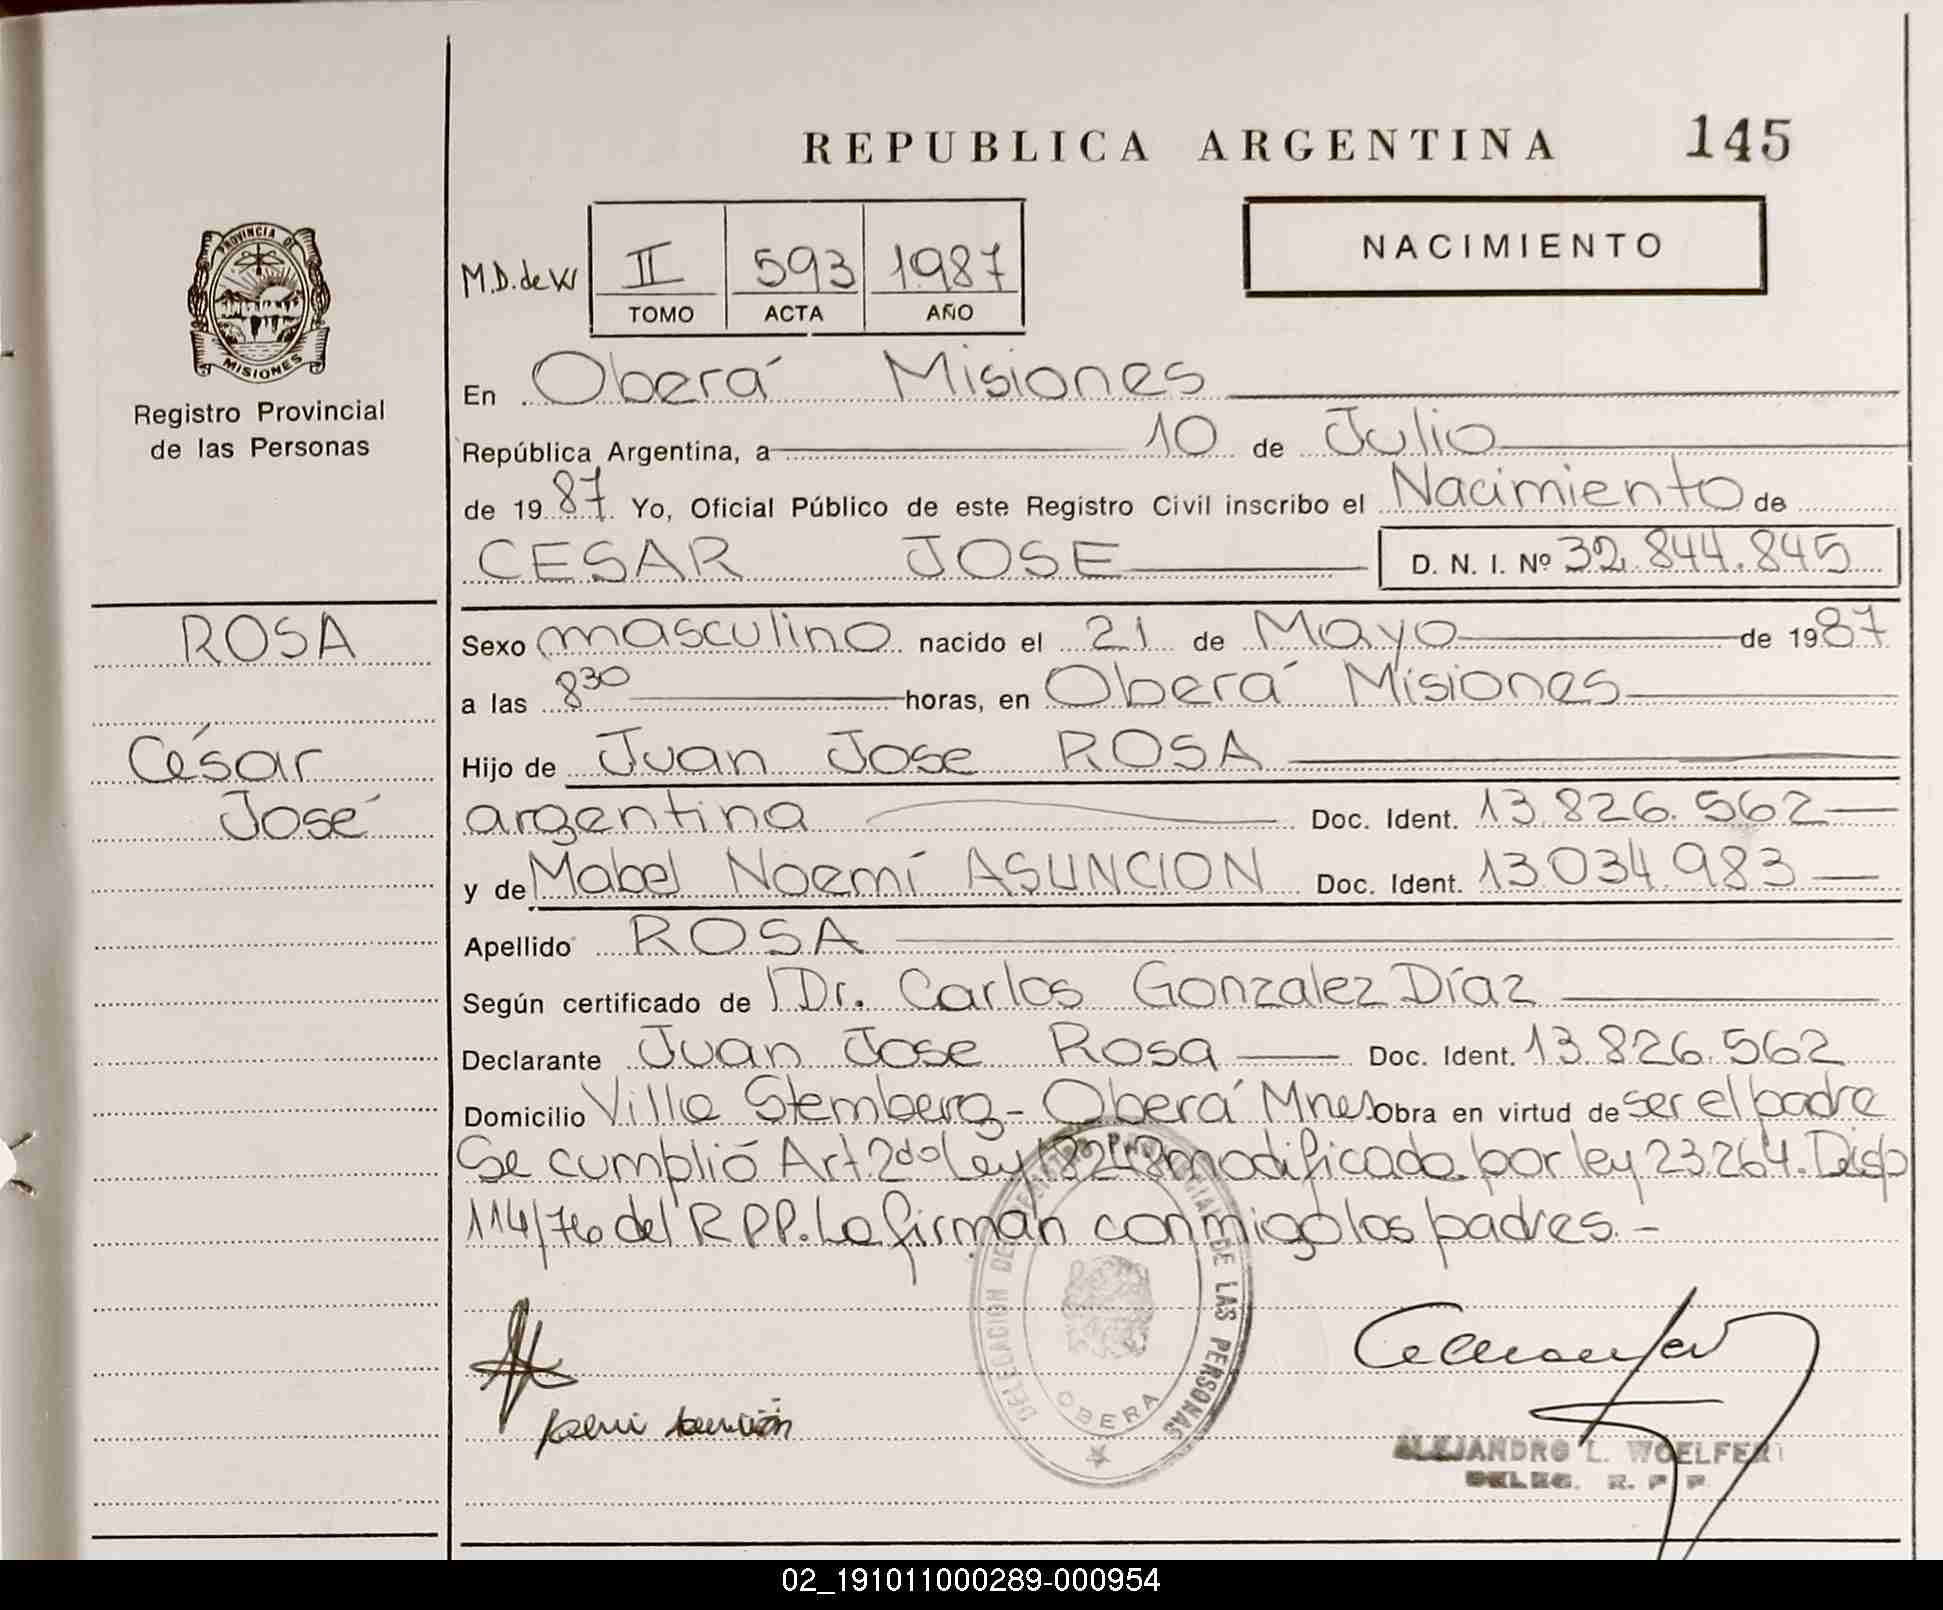 REPUBLICA ARGENTINA 145
PROVINCIA DE
MISIONES
Registro Provincial
de las Personas
M.D. de W
II 593 1987
TOMO ACTA AÑO
NACIMIENTO
En Oberá Misiones
República Argentina, a 10 de Julio
de 1987 Yo, Oficial Público de este Registro Civil inscribo el Nacimiento de
CESAR JOSE D. N. I. Nº 32.844.845
ROSA
César
José
Sexo masculino nacido el 21 de Mayo de 1987
a las 8 30 horas, en Oberá Misiones
Hijo de Juan Jose ROSA
argentina Doc. Ident. 13.826.562
y de Mabel Noemí ASUNCION Doc. Ident. 13034983
Apellido ROSA
Según certificado de Dr. Carlos Gonzalez Díaz
Declarante Juan Jose Rosa Doc. Ident. 13.826.562
Domicilio Villa Stemberg - Oberá Mnes Obra en virtud de ser el padre
Se cumplió Art 2do Ley 18248 modificada por ley 23264. Disp
114/76 del R P P. La firman conmigo los padres. -
DELEGACION DEL REGISTRO PROVINCIAL DE LAS PERSONAS
OBERA
ALEJANDRO L. WOELFERT
DELEG. R. P P
02_191011000289-000954